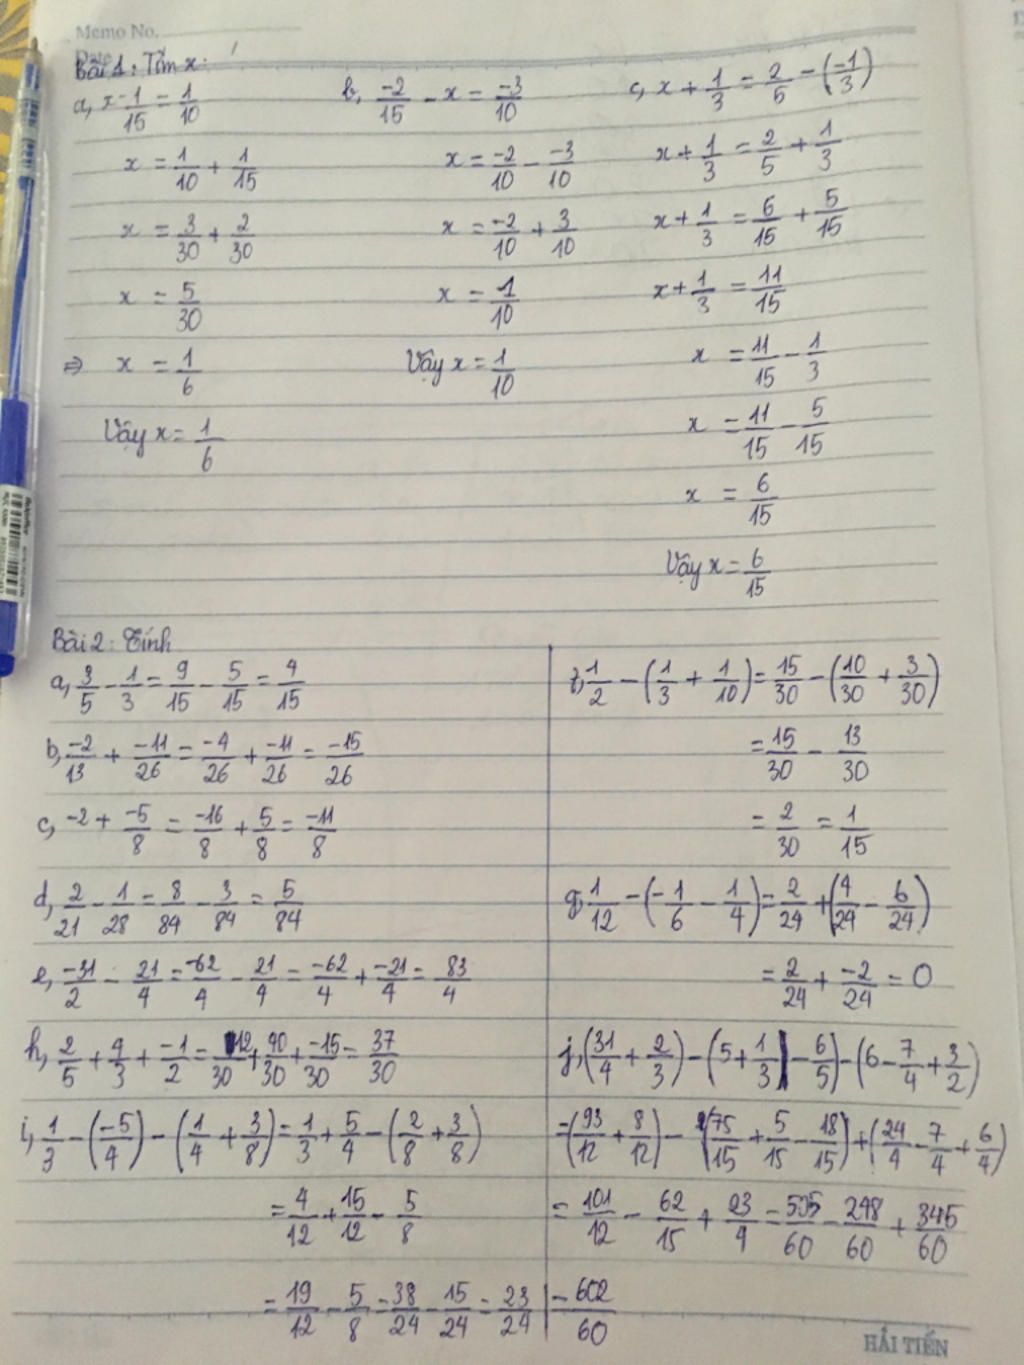 Memo No.
Date
Bài 1: Tìm x:
a, x - 1/15 = 1/10
x = 1/10 + 1/15
x = 3/30 + 2/30
x = 5/30
⇒ x = 1/6
Vậy x = 1/6
b, -2/15 - x = -3/10
x = -2/10 - -3/10
x = -2/10 + 3/10
x = 1/10
Vậy x = 1/10
c, x + 1/3 = 2/5 - (-1/3)
x + 1/3 = 2/5 + 1/3
x + 1/3 = 6/15 + 5/15
x + 1/3 = 11/15
x = 11/15 - 1/3
x = 11/15 - 5/15
x = 6/15
Vậy x = 6/15
Bài 2: Tính
a, 3/5 - 1/3 = 9/15 - 5/15 = 4/15
b, -2/13 + -11/26 = -4/26 + -11/26 = -15/26
c, -2 + -5/8 = -16/8 + 5/8 = -11/8
d, 2/21 - 1/28 = 8/84 - 3/84 = 5/84
e, -31/2 - 21/4 = -62/4 - 21/4 = -62/4 + -21/4 = 83/4
h, 2/5 + 4/3 + -1/2 = 12/30 + 40/30 + -15/30 = 37/30
i, 1/3 - (-5/4) - (1/4 + 3/8) = 1/3 + 5/4 - (2/8 + 3/8)
= 4/12 + 15/12 - 5/8
= 19/12 - 5/8 = 38/24 - 15/24 = 23/24
1/2 - (1/3 + 1/10) = 15/30 - (10/30 + 3/30)
= 15/30 - 13/30
= 2/30 = 1/15
g, 1/12 - (-1/6 - 1/4) = 2/24 + (4/24 - 6/24)
= 2/24 + -2/24 = 0
j, (31/4 + 2/3) - (5 + 1/3 - 6/5) - (6 - 7/4 + 3/2)
= (93/12 + 8/12) - (75/15 + 5/15 - 18/15) + (24/4 - 7/4 + 6/4)
= 101/12 - 62/15 + 23/4 = 505/60 - 248/60 + 345/60
= 602/60
HẢI TIẾN